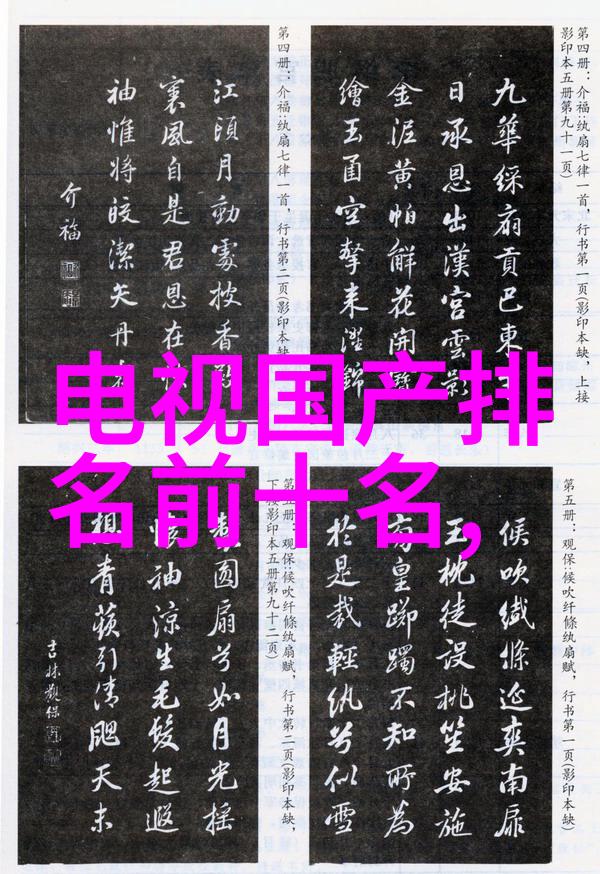 第四册：介福：纨扇七律一首，行书第一页（影印本缺，上接
影印本五册第九十一页）
九華綵扇貢巴東
日承恩出漢宮雲影
金泥黄帕解花開
繪玉函空擎来澄錦
第四册：介福：纨扇七律一首，行书第二页（影印本缺
江頭月動處披香
裏風自是君恩在
袖惟将皎潔矢丹
介福
电视国产排
名前十名,
第五册：观保：候吹纤條纨扇赋，行书第一页（影印本缺）
候吹纖條延爽南扉
玉枕徒设桃笙安施
有皇躑躅不知所為
於是裁輕纨兮似雪
第五册：观保：候吹纤條纨扇赋，行书第二页（影印本缺，
下接影印本五册第九十二页）
製圓扇兮如月光揺
懷袖涼生毛髮起遐
想青蘋引清颸天末
吉林觀保